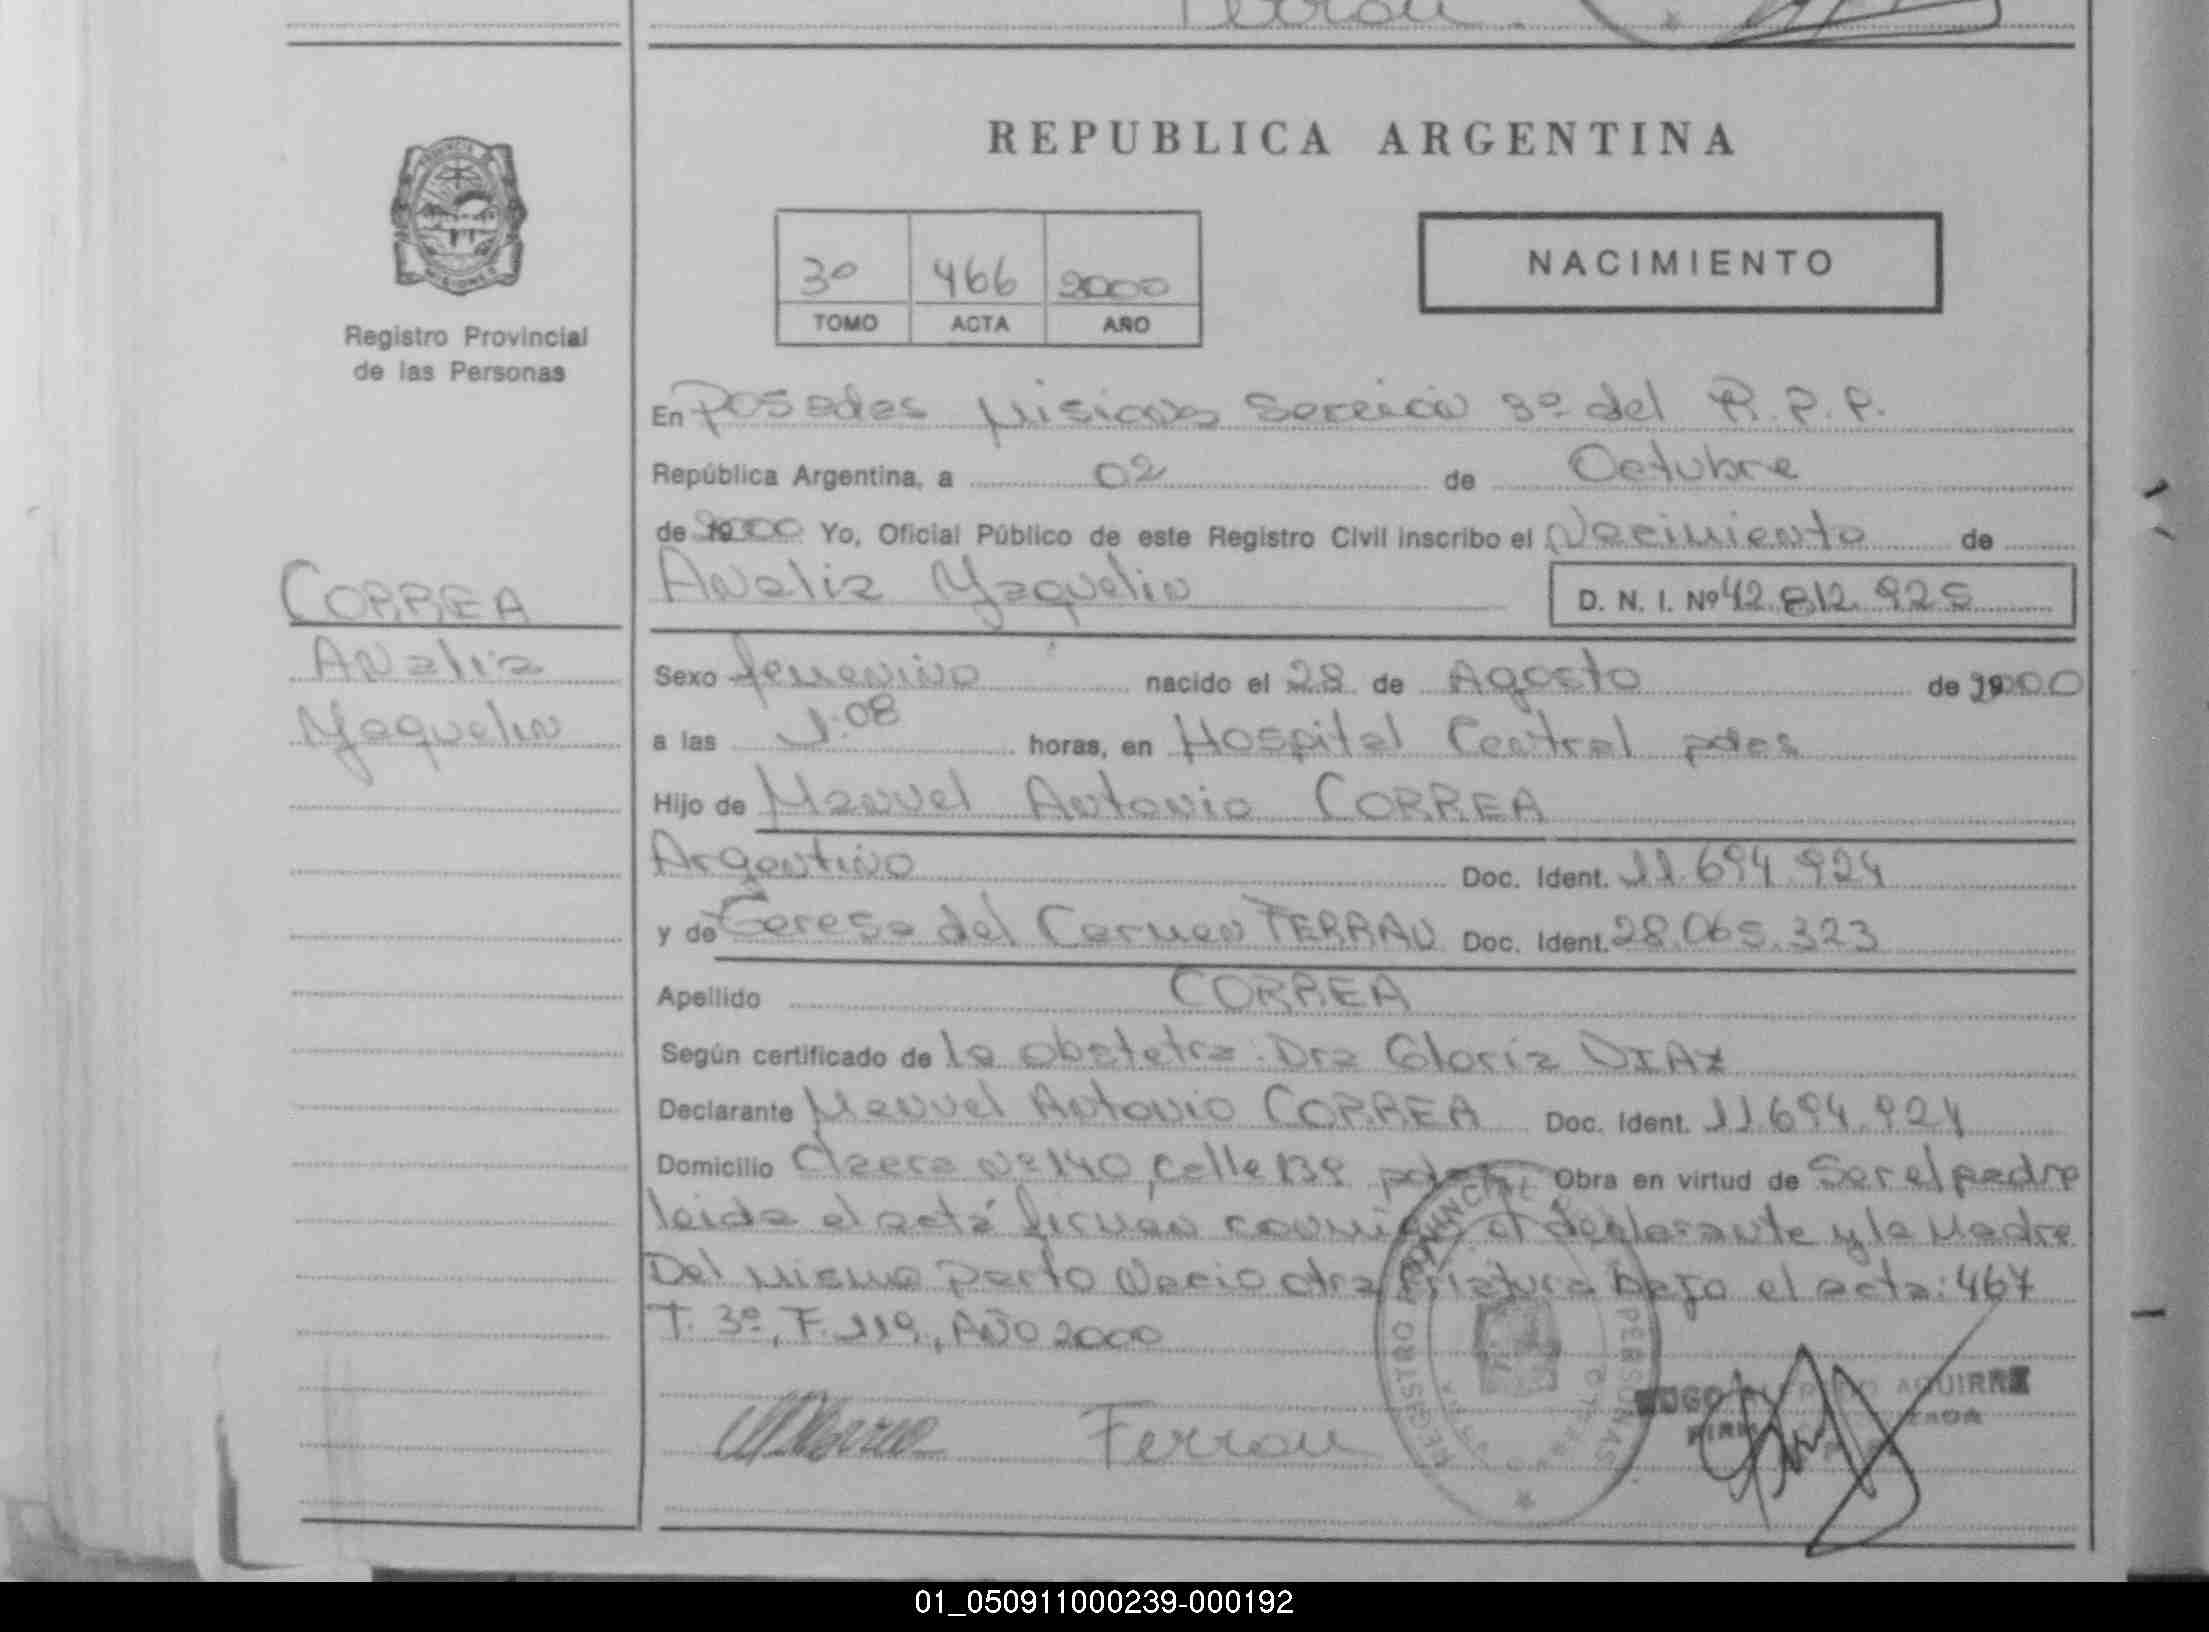 REPUBLICA ARGENTINA
PROVINCIA
MISIONES
Registro Provincial
de las Personas
3º 466 2000
TOMO ACTA AÑO
NACIMIENTO
En Posadas Misiones Sección 3º del R.P.P.
República Argentina, a 02 de Octubre
de 2000 Yo, Oficial Público de este Registro Civil inscribo el Nacimiento de
Analia Yaquelin
D. N. I. Nº 42.812.925
CORREA
Analia
Yaquelin
Sexo femenino nacido el 28 de Agosto de 2000
a las 1:08 horas, en Hospital Central pdas
Hijo de Manuel Antonio CORREA
Argentino Doc. Ident. 11.694.924
y de Teresa del Carmen FERRAU Doc. Ident. 28.065.323
Apellido CORREA
Según certificado de la obstetra: Dra Gloria DIAZ
Declarante Manuel Antonio CORREA Doc. Ident. 11.694.924
Domicilio Chacra Nº 140, Calle 139 pdas Obra en virtud de Ser el padre
leida el acta firman conmigo el declarante y la Madre
Del mismo parto Nacio otra Criatura bajo el acta: 467
T. 3º, F. 119, AÑO 2000
REGISTRO PROVINCIAL PERSONAS
HUGO AGUIRRE
Ferrau
01_050911000239-000192